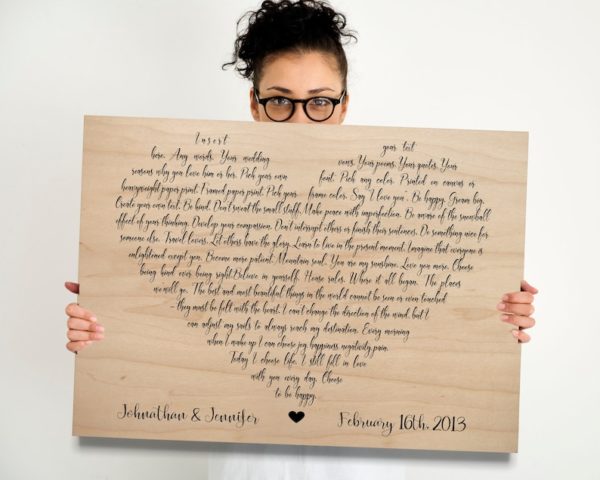 Insert your text
here. Any words. Your wedding vows. Your poems. Your quotes. Your
reasons why you love him or her. Pick your own font. Pick any color. Printed on canvas or
heavyweight paper print. Framed paper print. Pick your frame color. Say 'I love you'. Be happy. Gream big.
Create your own text. Be kind. Don't sweat the small stuff. Make peace with imperfection. Be aware of the snowball
effect of your thinking. Develop your compassion. Don't interrupt others or finish their sentences. Do something nice for
someone else. Travel lovers. Let others have the glory. Learn to live in the present moment. Imagine that everyone is
enlightened except you. Become more patient. Mountain soul. You are my sunshine. Love you more. Choose
being kind over being right. Believe in yourself. House rules. Where it all began. The places
we will go. The best and most beautiful things in the world cannot be seen or even touched
- they must be felt with the heart. I can't change the direction of the wind, but I
can adjust my sails to always reach my destination. Every morning
when I wake up I can choose joy, happiness, negativity, pain.
Today I choose life. I still fall in love
with you every day. Choose
to be happy.
Johnathan & Jennifer February 16th, 2013